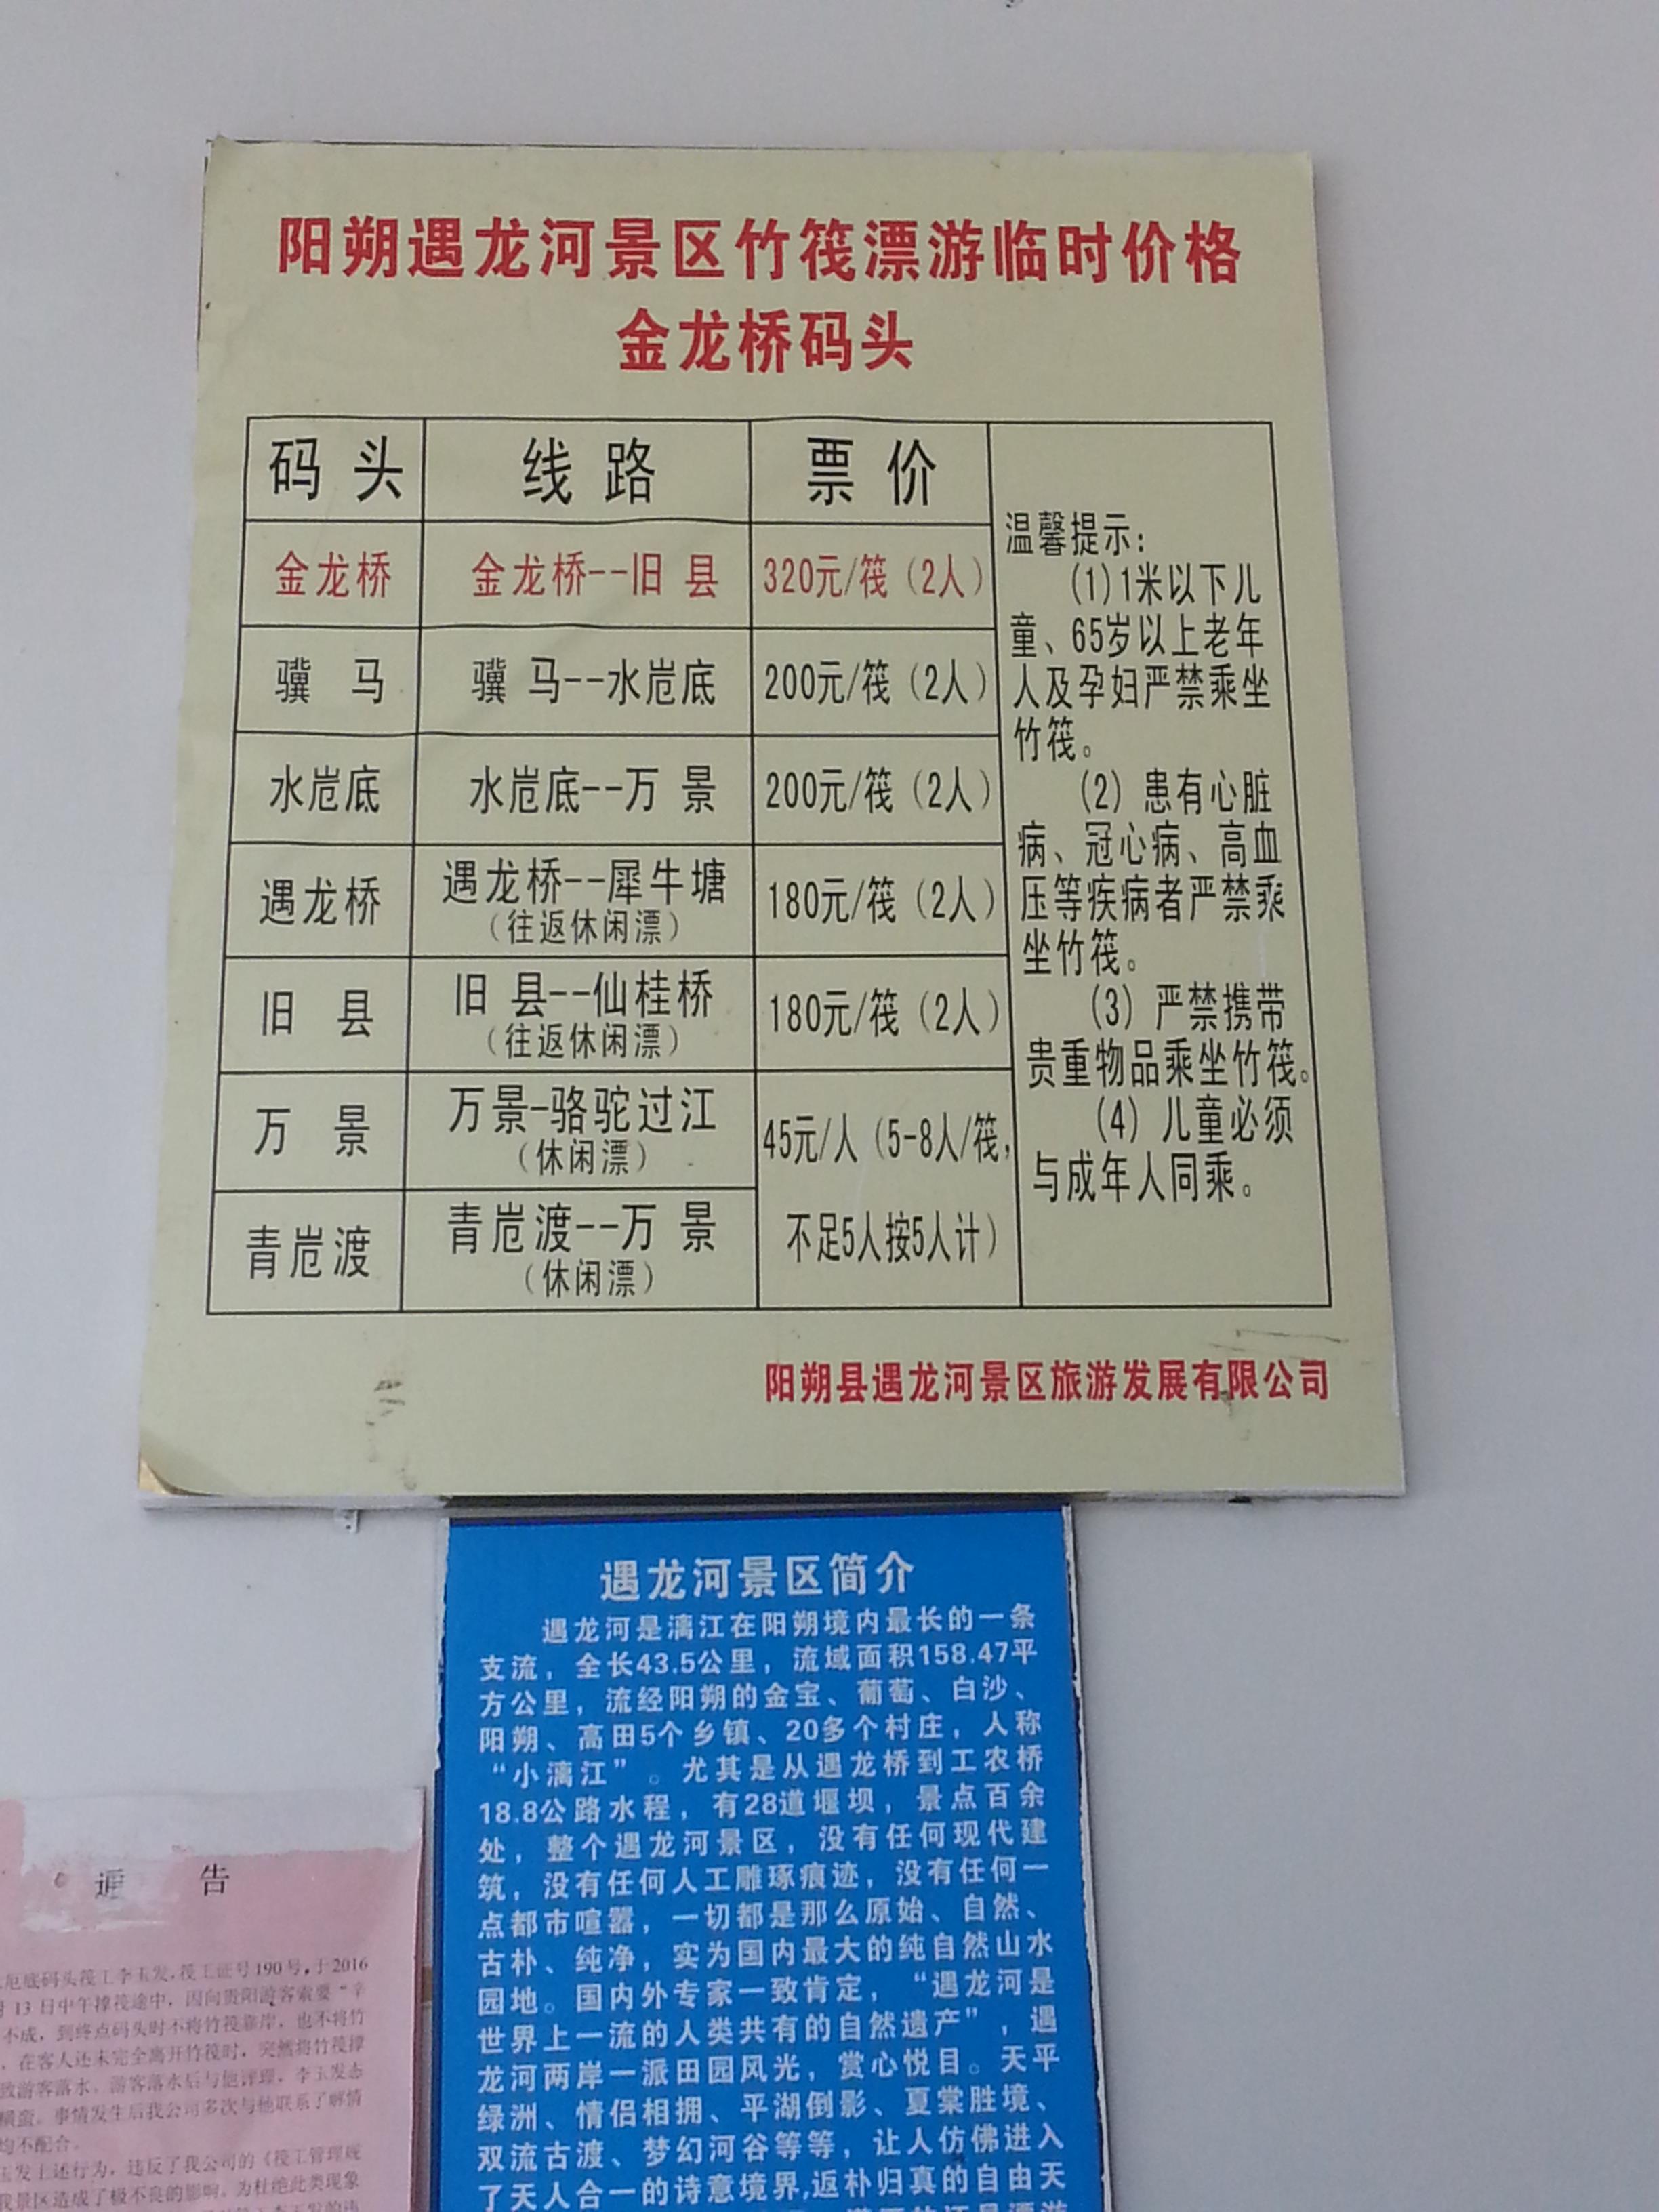 阳朔遇龙河景区竹筏漂游临时价格
金龙桥码头
码头 线路 票价
金龙桥 金龙桥--旧县 320元/筏（2人）
骥马 骥马--水岜底 200元/筏（2人）
水岜底 水岜底--万景 200元/筏（2人）
遇龙桥 遇龙桥--犀牛塘 180元/筏（2人）
（往返休闲漂）
旧县 旧县--仙桂桥 180元/筏（2人）
（往返休闲漂）
万景 万景-骆驼过江 45元/人（5-8人/筏，
（休闲漂）
青岜渡 青岜渡--万景 不足5人按5人计）
（休闲漂）
温馨提示：
(1)1米以下儿
童、65岁以上老年
人及孕妇严禁乘坐
竹筏。
(2) 患有心脏
病、冠心病、高血
压等疾病者严禁乘
坐竹筏。
(3) 严禁携带
贵重物品乘坐竹筏。
(4) 儿童必须
与成年人同乘。
阳朔县遇龙河景区旅游发展有限公司
遇龙河景区简介
遇龙河是漓江在阳朔境内最长的一条
支流，全长43.5公里，流域面积158.47平
方公里，流经阳朔的金宝、葡萄、白沙、
阳朔、高田5个乡镇、20多个村庄，人称
“小漓江”。尤其是从遇龙桥到工农桥
18.8公路水程，有28道堰坝，景点百余
处，整个遇龙河景区，没有任何现代建
筑，没有任何人工雕琢痕迹，没有任何一
点都市喧嚣，一切都是那么原始、自然、
古朴、纯净，实为国内最大的纯自然山水
园地。国内外专家一致肯定，“遇龙河是
世界上一流的人类共有的自然遗产”，遇
龙河两岸一派田园风光，赏心悦目。天平
绿洲、情侣相拥、平湖倒影、夏棠胜境、
双流古渡、梦幻河谷等等，让人仿佛进入
了天人合一的诗意境界,返朴归真的自由天
通告
底码头筏工李玉发,筏工证号190号,于2016
月13日中午撑筏途中，因向贵阳游客索要“辛
不成，到终点码头时不将竹筏靠岸，也不将竹
，在客人还未完全离开竹筏时，突然将竹筏撑
致游客落水。游客落水后与他评理，李玉发态
横蛮。事情发生后我公司多次与他联系了解情
均不配合。
玉发上述行为，违反了我公司的《筏工管理规
我景区造成了极不良的影响。为杜绝此类现象